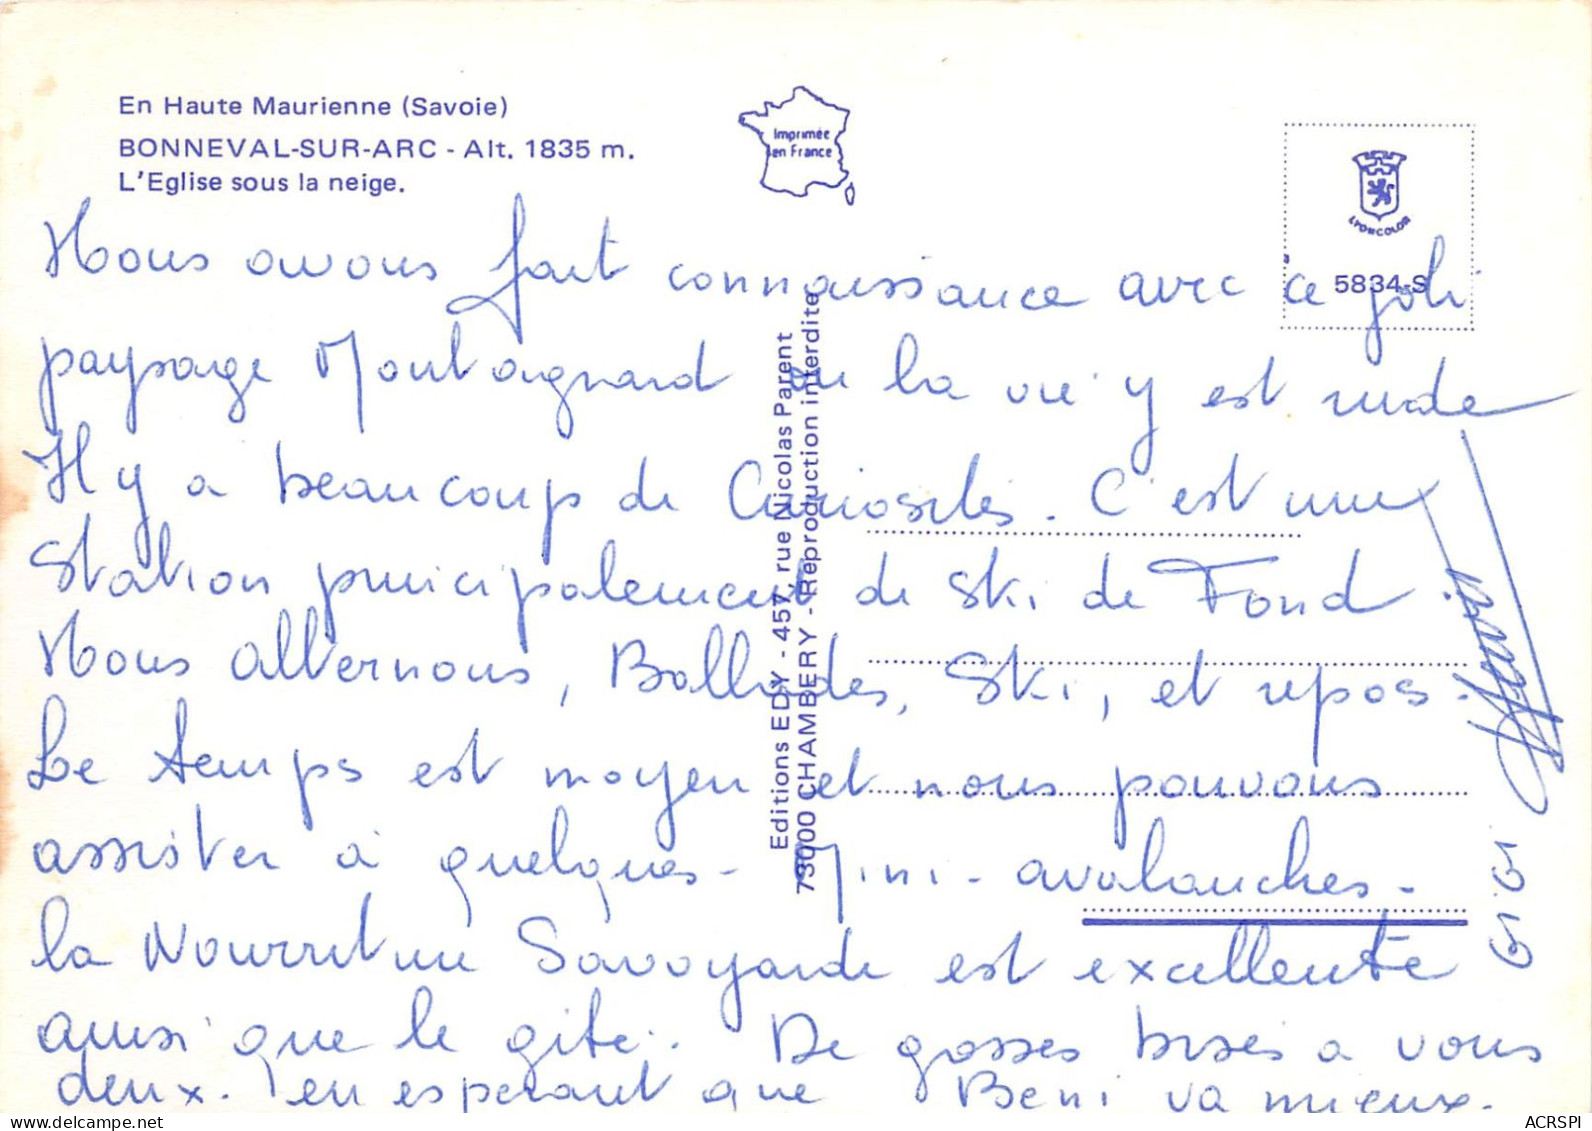 En Haute Maurienne (Savoie)
BONNEVAL-SUR-ARC - Alt. 1835 m.
L'Eglise sous la neige.
Imprimée
en France
LYONCOLOR
5834-S
Editions EDY - 457, rue Nicolas Parent
73000 CHAMBERY - Reproduction interdite
Nous avons fait connaissance avec ce joli
paysage Montagnard ou la vie y est rude
Il y a beaucoup de Curiosités. C'est une
Station principalement de Ski de Fond.
Nous alternons, Ballades, Ski, et repos.
Le temps est moyen et nous pouvons
assister à quelques - Mini - avalanches -
la Nourriture Savoyarde est excellente
ainsi que le gite. De grosses bises a vous
deux. en esperant que Beni va mieux.
ACRSPI